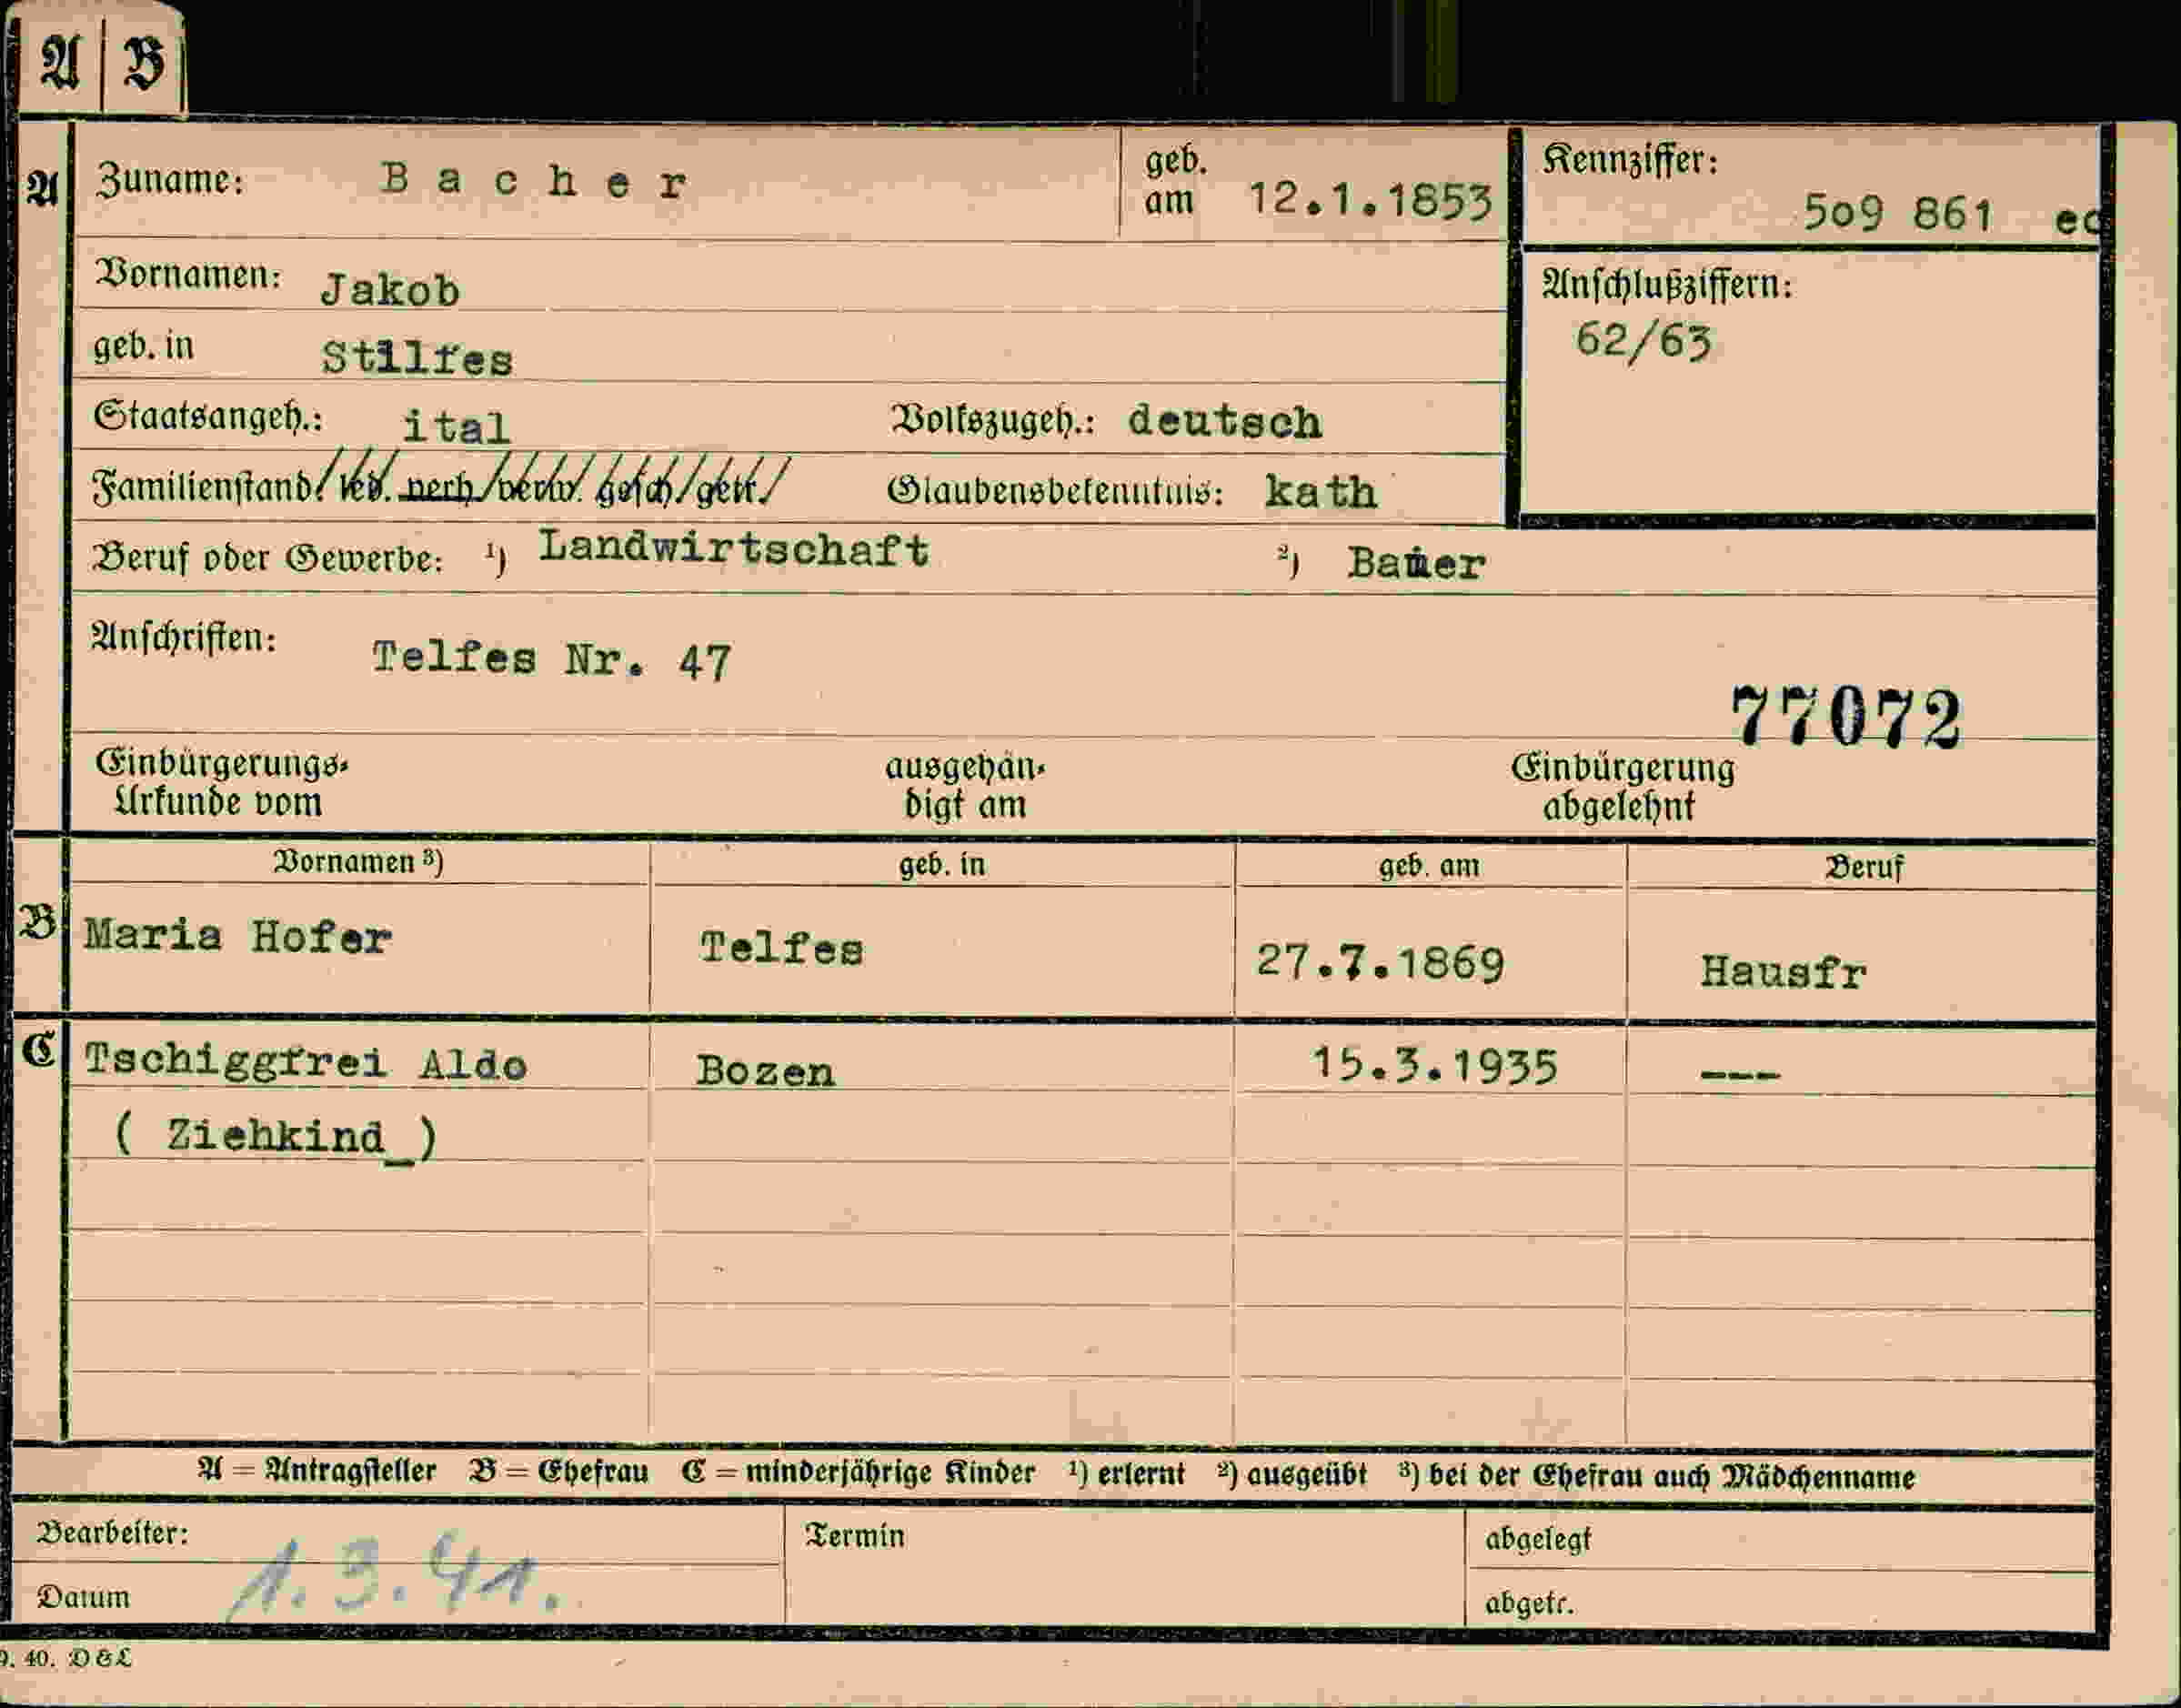 A B
A Zuname: Bacher geb. am 12.1.1853 Kennziffer: 5o9 861 ec
Vornamen: Jakob Anschlußziffern:
geb. in Stilfes 62/63
Staatsangeh.: ital Volkszugeh.: deutsch
Familienstand: led. verh. verw. gesch. getr. Glaubensbekenntnis: kath
Beruf oder Gewerbe: ¹) Landwirtschaft ²) Bauer
Anschriften: Telfes Nr. 47
77072
Einbürgerungs- ausgehän- Einbürgerung
Urkunde vom digt am abgelehnt
Vornamen ³) geb. in geb. am Beruf
B Maria Hofer Telfes 27.7.1869 Hausfr
C Tschiggfrei Aldo Bozen 15.3.1935 ---
( Ziehkind_)
A = Antragsteller B = Ehefrau C = minderjährige Kinder ¹) erlernt ²) ausgeübt ³) bei der Ehefrau auch Mädchenname
Bearbeiter: Termin abgelegt
Datum 1.3.41. abgetr.
9. 40. D&L